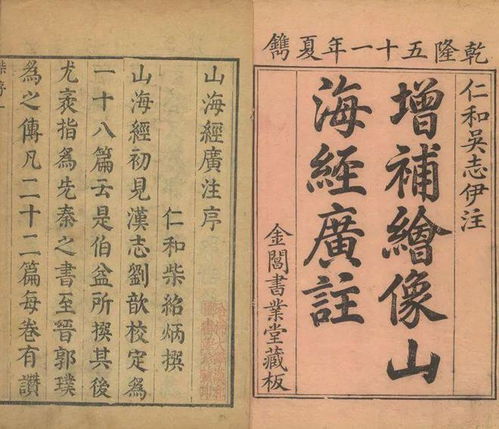 乾隆五十一年夏鐫
仁和吳志伊注
增補繪像山
海經廣註
金閶書業堂藏板
山海經廣注序
仁和柴紹炳撰
山海經初見漢志劉歆校定為
一十八篇云是伯益所撰其後
尤袤指爲先秦之書至晉郭璞
為之傳凡二十二篇每卷有讚